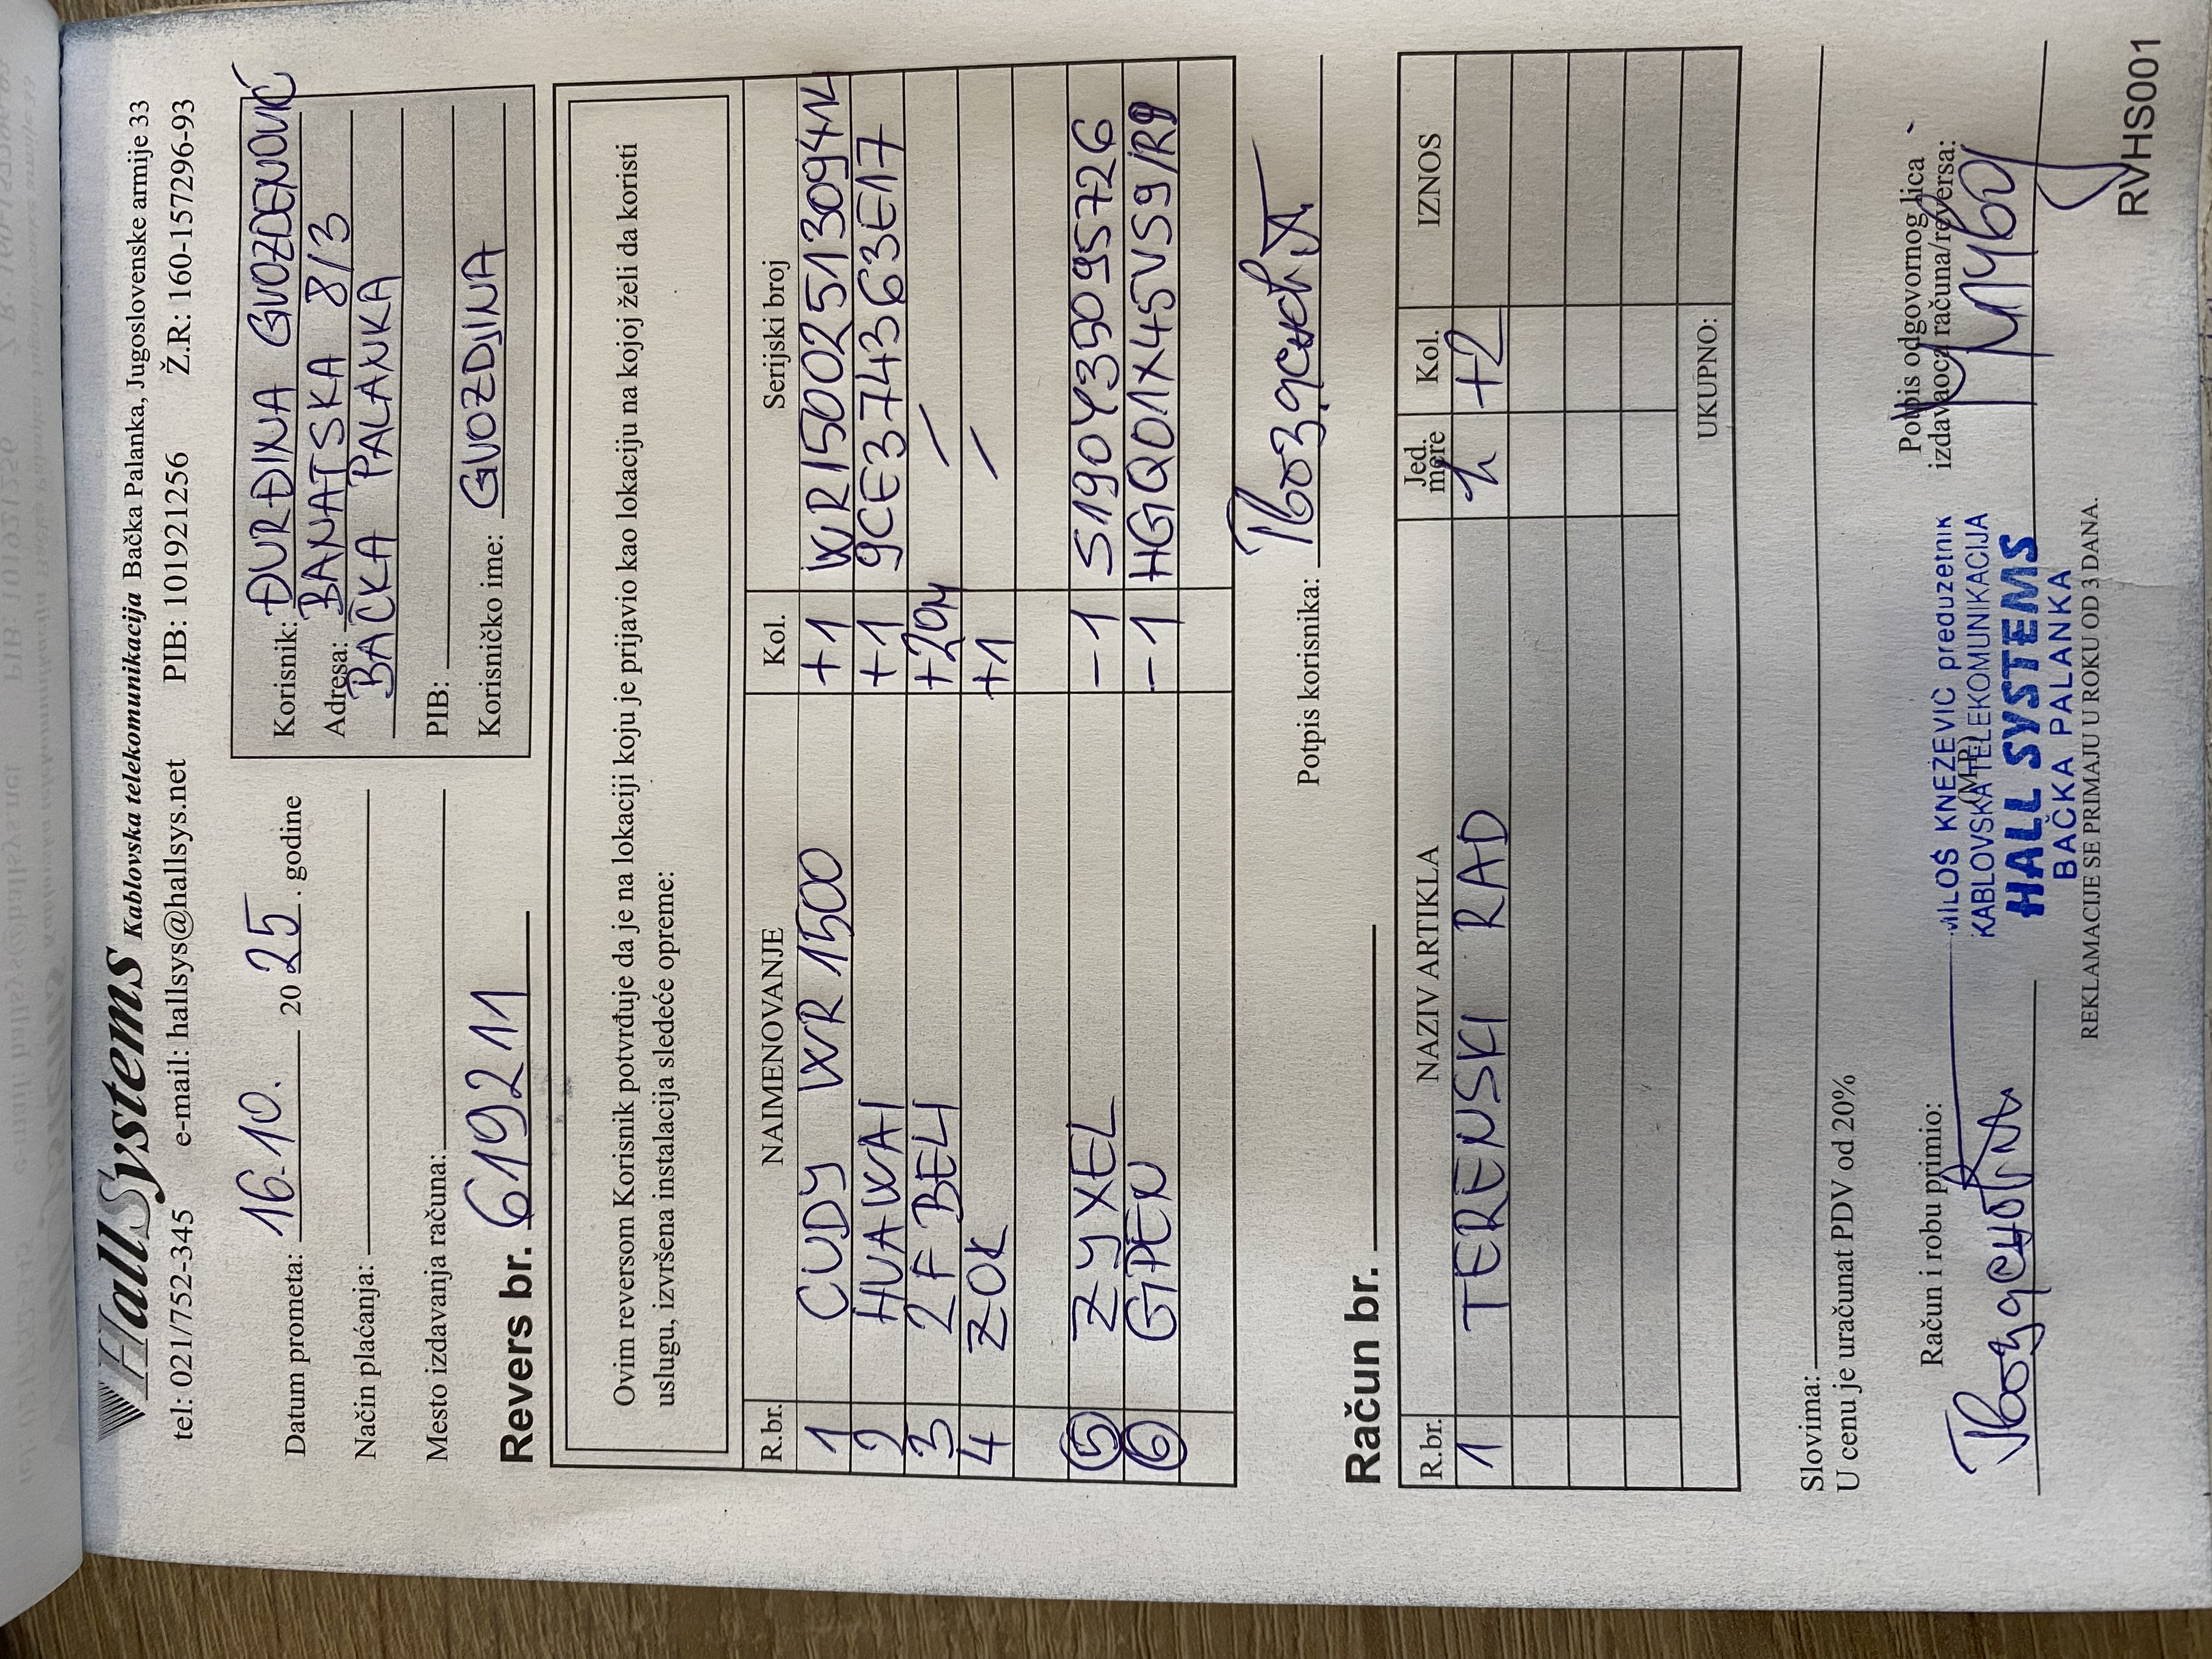 HallSystems Kablovska telekomunikacija Bačka Palanka, Jugoslovenske armije 33
tel: 021/752-345 e-mail: hallsys@hallsys.net PIB: 101921256 Ž.R: 160-157296-93
Datum prometa: 16.10. 20 25. godine
Način plaćanja:
Mesto izdavanja računa:
Revers br. 619211
Korisnik: ĐURĐINA GVOZDENOVIĆ
Adresa: BANATSKA 8/3
BAČKA PALANKA
PIB:
Korisničko ime: GVOZDJINA
Ovim reversom Korisnik potvrđuje da je na lokaciji koju je prijavio kao lokaciju na kojoj želi da koristi
uslugu, izvršena instalacija sledeće opreme:
R.br. NAIMENOVANJE Kol. Serijski broj
1 CUDY WR 1500 +1
2 HUAWAI +1 9CE374363E17
3 2F BELI +29M /
4 ZOK +1 /
5 ZYXEL -1 S190Y35095726
6 GPEN -1
Potpis korisnika:
Račun br.
R.br. NAZIV ARTIKLA Jed. mere Kol. IZNOS
1 TERENSKI RAD h +2
UKUPNO:
Slovima:
U cenu je uračunat PDV od 20%
Račun i robu primio:
(M.P.)
Potpis odgovornog lica
izdavaoca računa/reversa:
MILOŠ KNEŽEVIĆ preduzetnik
KABLOVSKA TELEKOMUNIKACIJA
HALL SYSTEMS
BAČKA PALANKA
REKLAMACIJE SE PRIMAJU U ROKU OD 3 DANA.
RVHS001